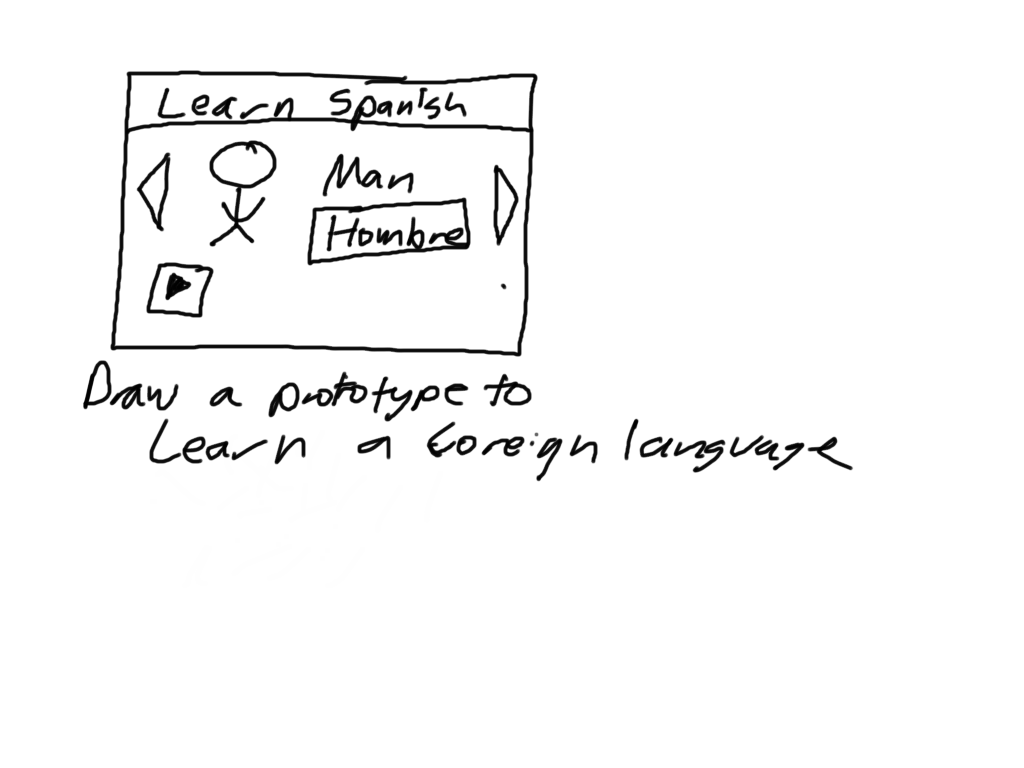 Learn Spanish
Man
Hombre
Draw a prototype to
Learn a foreign language